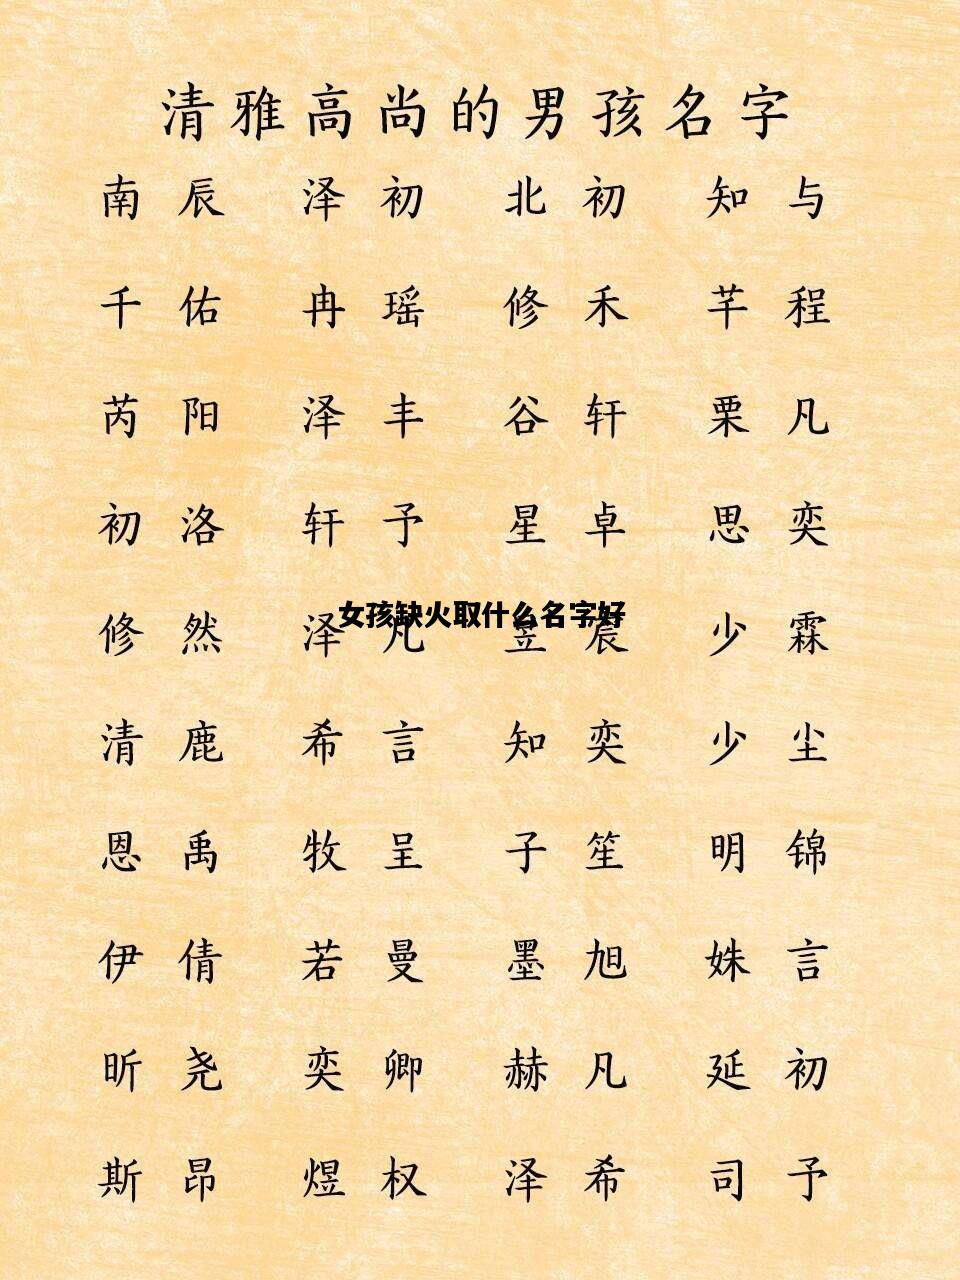 清雅高尚的男孩名字
南辰 泽初 北初 知与
千佑 冉瑶 修禾 芊程
芮阳 泽丰 谷轩 栗凡
初洛 轩予 星卓 思奕
女孩缺火取什么名字好
修然 泽凡 昱宸 少霖
清鹿 希言 知奕 少尘
恩禹 牧呈 子笙 明锦
伊倩 若曼 墨旭 姝言
昕尧 奕卿 赫凡 延初
斯昂 煜权 泽希 司予